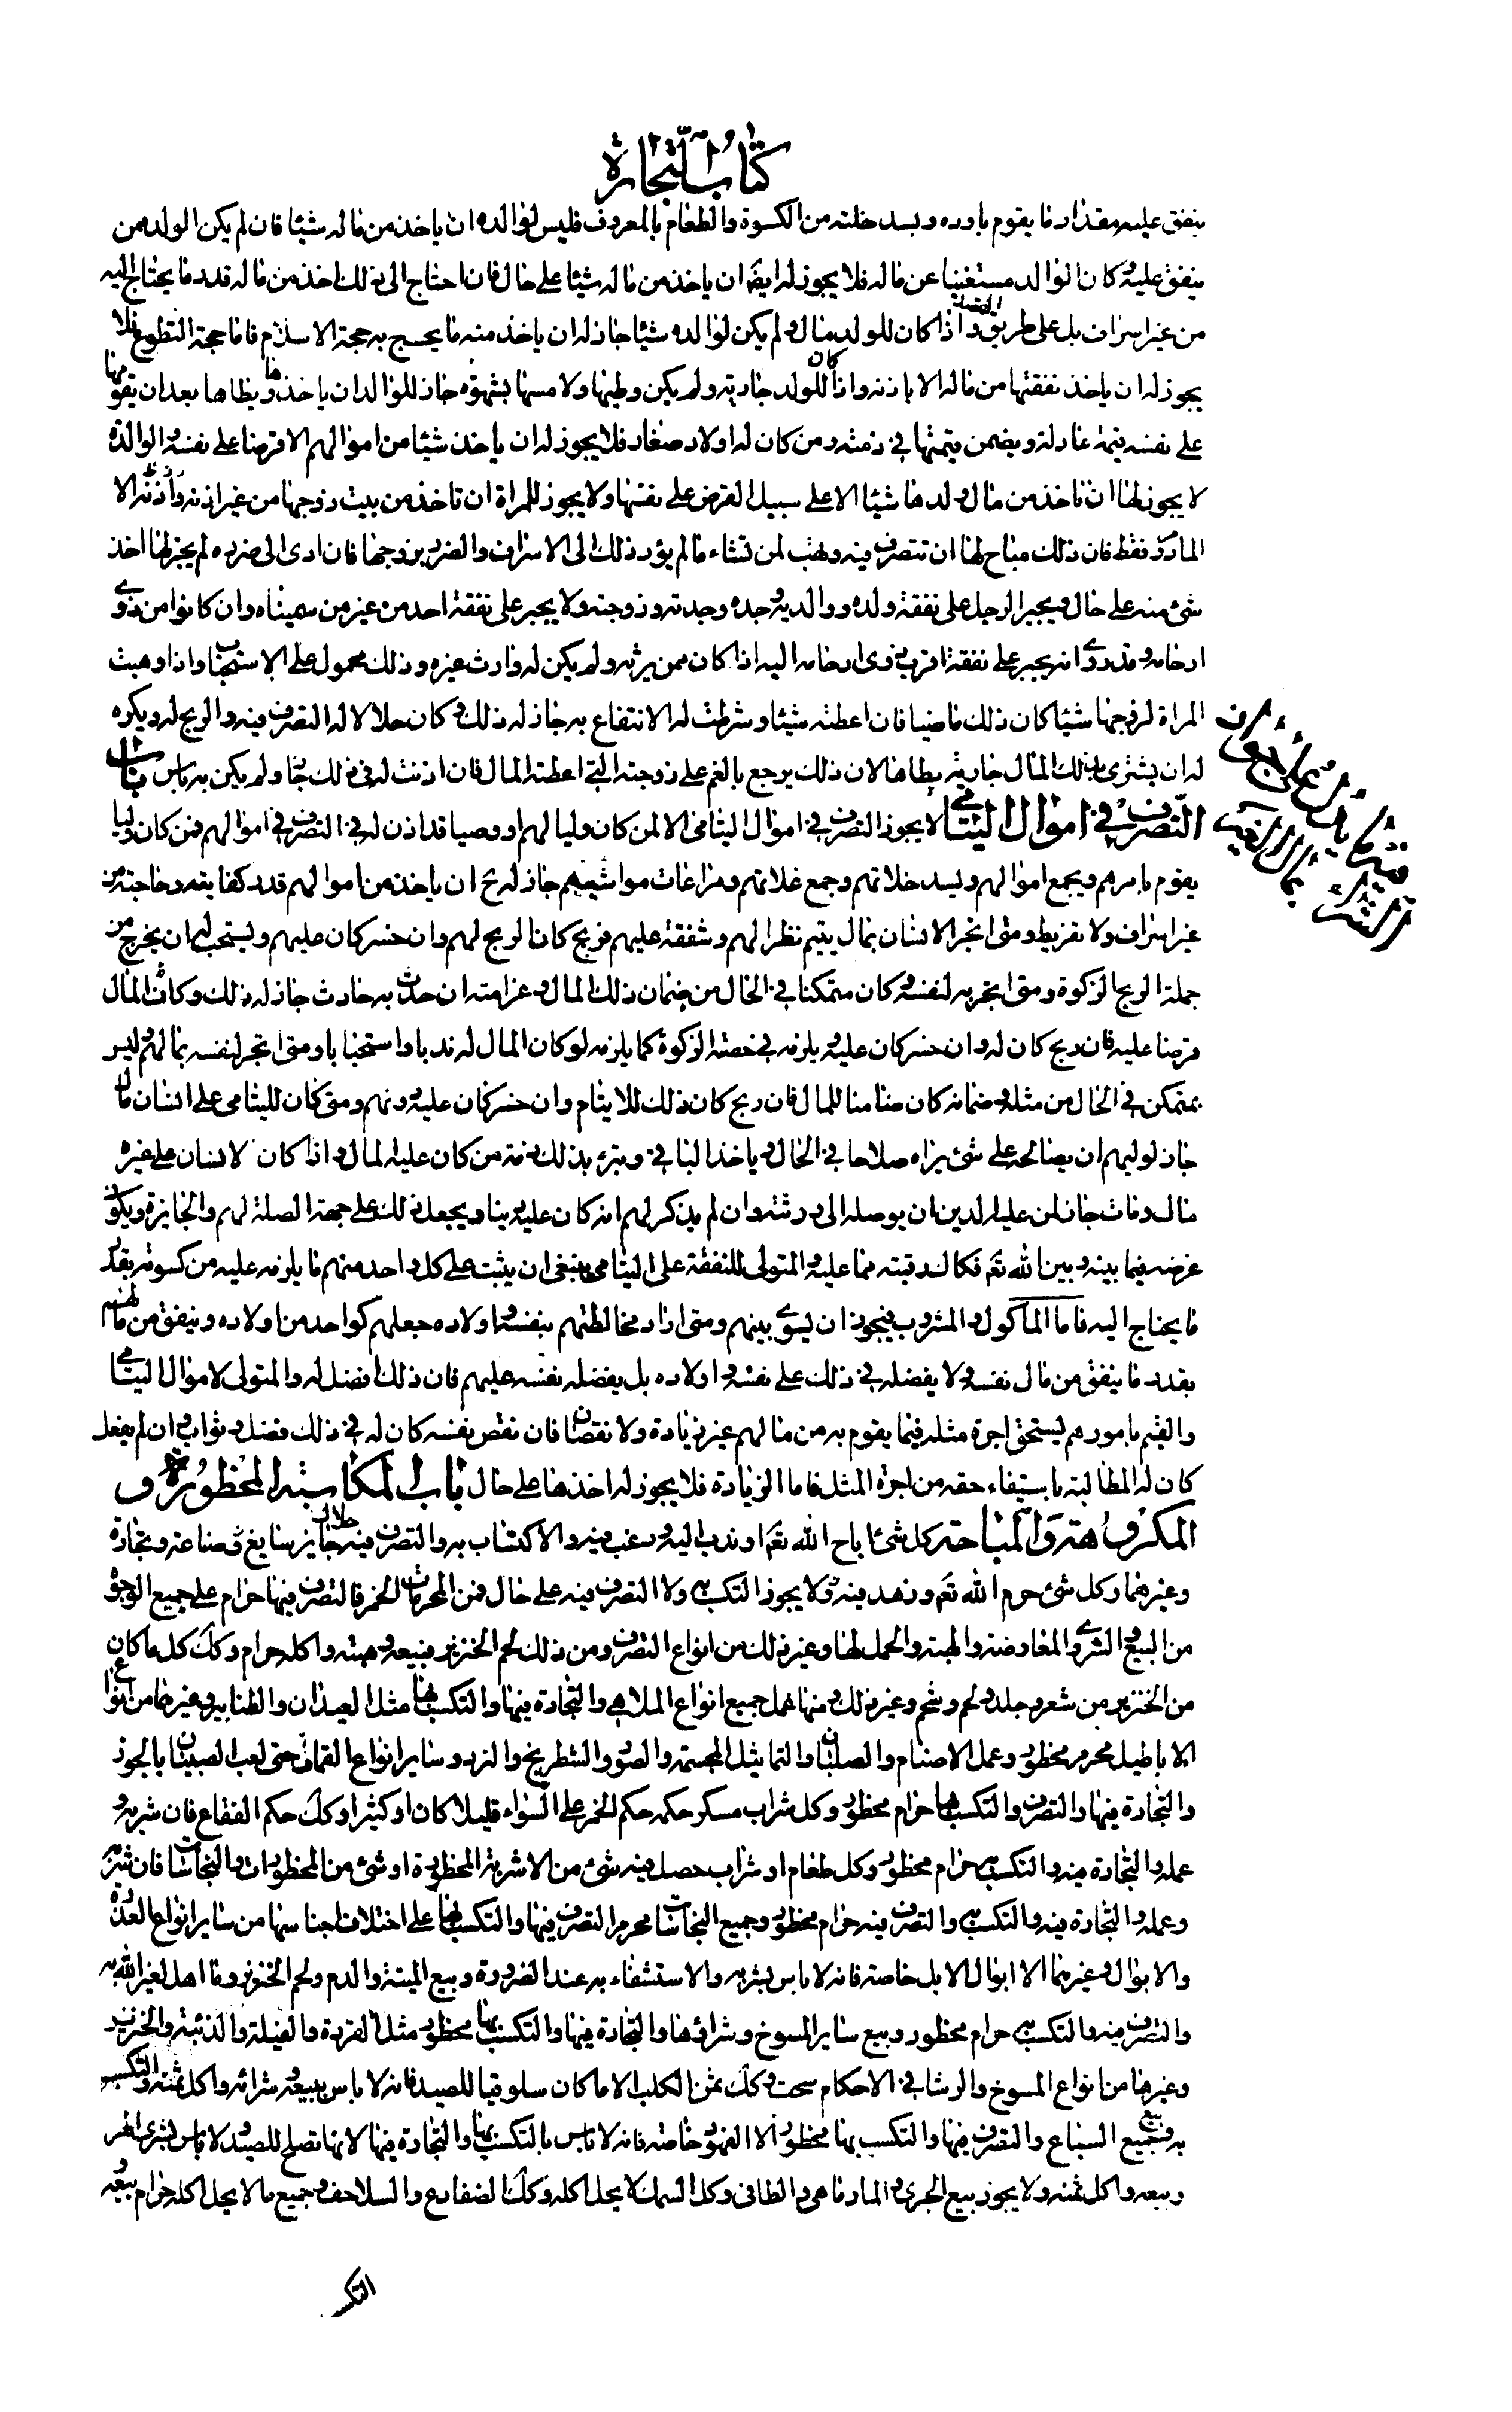 كتاب التجارة
ينفق عليه مقدار ما يقوم باوده ويسد خلته من الكسوة والطعام بالمعروف فليس لوالده ان ياخذ من ماله شيئا فان لم يكن الولد ممن
ينفق عليه وكان الوالد مستغنيا عن ماله فلا يجوز له ايضا ان ياخذ من ماله شيئا على حال فان احتاج الى ذلك اخذ من ماله قدر ما يحتاج اليه
من غير اسراف بل على طريق القصد واذا كان للولد مال ولم يكن لوالده شيئا جاز له ان ياخذ منه ما يحج به حجة الاسلام فاما حجة التطوع فلا
يجوز له ان ياخذ نفقتها من ماله الا باذنه واذا كان للولد جارية ولم يكن وطيها ولا مسها بشهوة جاز للوالد ان ياخذها ويطاها بعد ان يقومها
على نفسه قيمة عادلة ويضمن قيمتها في ذمته ومن كان له اولاد صغار فلا يجوز له ان ياخذ شيئا من اموالهم الا قرضا على نفسه والوالدة
لا يجوز لها ان تاخذ من مال ولدها شيئا الا على سبيل القرض على نفسها ولا يجوز للمراة ان تاخذ من بيت زوجها من غير اذنه وامره الا
المادوم فقط فان ذلك مباح لها ان تتصرف فيه وتهب لمن تشاء ما لم يؤد ذلك الى الاسراف والضرر بزوجها فان ادى الى ضرره لم يجز لها اخذ
شئ منه على حال ويجبر الرجل على نفقة ولده ووالديه وجده وجدته وزوجته ولا يجبر على نفقة احد من غير من سميناه وان كانوا من ذوي
ارحامه وقد روي انه يجبر على نفقة اقرب ذوى ارحامه اليه اذا كان ممن يرثه ولم يكن له وارث غيره وذلك محمول على الاستحباب واذا وهبت
المراة لزوجها شيئا كان ذلك ماضيا فان اعطته شيئا وشرطت له الانتفاع به جاز له ذلك وكان حلالا له التصرف فيه والربح له ويكره
له ان يشترى بذلك المال جارية يطاها لان ذلك يرجع بالغم على زوجته التي اعطته المال فان اذنت له في ذلك جاز ولم يكن به باس باب
التصرف في اموال اليتامى لا يجوز التصرف في اموال اليتامى الا لمن كان وليا لهم او وصيا قد اذن له في التصرف في اموالهم فمن كان وليا
يقوم بامرهم ويجمع اموالهم ويسد خلاتهم وجمع غلاتهم ومراعات مواشيهم جاز له ح ان ياخذ من اموالهم قدر كفايته وحاجته من
غير اسراف ولا تفريط ومتى اتجر الانسان بمال يتيم نظرا لهم وشفقة عليهم فربح كان الربح لهم وان خسر كان عليهم ويستحب له ان يخرج من
جملة الربح الزكوة ومتى اتجر به لنفسه وكان متمكنا في الحال من ضمان ذلك المال وغرامته ان حدث به حادث جاز له ذلك وكان المال
قرضا عليه فان ربح كان له وان خسر كان عليه ويلزمه في حصته الزكوة كما يلزمه لو كان المال له ندبا واستحبابا ومتى اتجر لنفسه بمالهم وليس
بمتمكن في الحال من مثله وضمانه كان ضامنا للمال فان ربح كان ذلك للايتام وان خسر كان عليه دونهم ومتى كان لليتامى على انسان مال
جاز لوليهم ان يصالحه على شئ يراه صلاحا في الحال وياخذ الباقي وتبرئ بذلك ذمة من كان عليه المال واذا كان لانسان على غيره
مال ومات جاز لمن عليه الدين ان يوصله الى ورثته وان لم يذكر لهم انه كان عليه دينا ويجعل ذلك على جهة الصلة لهم والجايزة ويكون
غرضه فيما بينه وبين الله تع فكاك رقبته مما عليه والمتولى للنفقة على اليتامى ينبغى ان يثبت على كل واحد منهم ما يلزمه عليه من كسوته بقدر
ما يحتاج اليه فاما الماكول والمشروب فيجوز ان يسوى بينهم ومتى اراد مخالطتهم بنفسه واولاده جعلهم كواحد من اولاده وينفق من مالهم
بقدر ما ينفق من مال نفسه ولا يفضله في ذلك على نفسه واولاده بل يفضله نفسه عليهم فان ذلك افضل له والمتولى لاموال اليتامى
والقيم بامورهم يستحق اجرة مثله فيما يقوم به من مالهم غير زيادة ولا نقصان فان نقص نفسه كان له في ذلك فضل وثواب وان لم يفعل
كان له المطالبة باستيفاء حقه من اجرة المثل فاما الزيادة فلا يجوز له اخذها على حال باب المكاسب المحظورة و
المكروهة والمباحة كل شئ اباح الله تع او ندب اليه ورغب فيه والاكتساب به والتصرف فيه حلال جايز سايغ من صناعة وتجارة
وغيرهما وكل شئ حرم الله تع وزهد فيه ولا يجوز التكسب به ولا التصرف فيه على حال فمن المحرمات الخمر فالتصرف فيها حرام على جميع الوجوه
من البيع والشرى والمعاوضة والهبة والحمل لها وغير ذلك من انواع التصرف ومن ذلك لحم الخنزير فبيعه وهبته واكله حرام وكك كل ما كان
من الخنزير من شعر وجلد ولحم وشحم وغير ذلك ومنها عمل جميع انواع الملاهي والتجارة فيها والتكسب بها مثل العيدان والطنابير وغيرهما من انواع
الاباطيل محرم محظور وعمل الاصنام والصلبان والتماثيل المجسمة والصور والشطرنج والنرد وساير انواع القمار حتى لعب الصبيان بالجوز
والتجارة فيها والتصرف والتكسب بها حرام محظور وكل شراب مسكر حكمه حكم الخمر على السواء قليلا كان او كثيرا وكك حكم الفقاع فان شربه و
عمله والتجارة فيه والتكسب به حرام محظور وكل طعام او شراب حصل فيه شئ من الاشربة المحظورة او شئ من المحظورات والنجاسات فان شربه
وعمله والتجارة فيه والتكسب به والتصرف فيه حرام محظور وجميع النجاسات محرم التصرف فيها والتكسب بها على اختلاف اجناسها من ساير انواع العذرة
والابوال وغيرهما الا ابوال الابل خاصة فانه لا باس بشربه والاستشفاء به عند الضرورة وبيع الميتة والدم ولحم الخنزير وما اهل لغير الله به
والتصرف فيه والتكسب به حرام محظور وبيع ساير المسوخ وشراؤها والتجارة فيها والتكسب بها محظور مثل القردة والفيلة والدببة والخنزير
وغيرها من انواع المسوخ والرشا في الاحكام سحت وكك ثمن الكلب الا ما كان سلوقيا للصيد فانه لا باس ببيعه وشرائه واكل ثمنه والتكسب
به وبيع جميع السباع والتصرف فيها والتكسب بها محظور الا الفهود خاصة فانه لا باس بالتكسب بها والتجارة فيها لانها تصلح للصيد ولا باس بشرى الهر
وبيعه واكل ثمنه ولا يجوز بيع الجرى والمارماهى والطافى وكل السمك لا يحل اكله وكك الضفادع والسلاحف وجميع ما لا يحل اكله حرام بيعه
التكسب